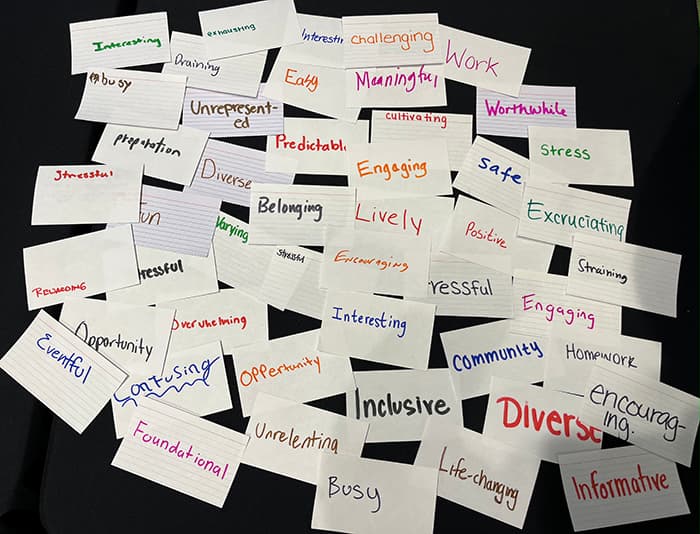 Interesting
exhausting
Interestin
challenging
Work
Draining
Busy
Easy
Meaningful
Unrepresent-
ed
Worthwhile
cultivating
preparation
Predictable
Stress
Diverse
Engaging
Safe
Stressful
fun
Belonging
Lively
Excruciating
Varying
Positive
Stressful
Encouraging
Straining
ressful
ressful
REWARDING
Engaging
Opportunity
Overwhelming
Interesting
community
Homework
Eventful
Confusing
Oppertunity
Inclusive
Diverse
encourag-
ing.
Foundational
Unrelenting
Life-changing
Busy
Informative